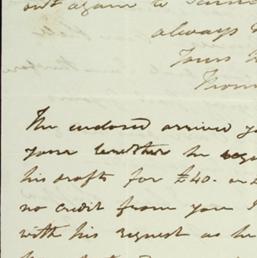 out again to
always
Yours
Thom
The enclosed arrived
your brother he
his drafts for £40.
no credit from you I
with his request as he